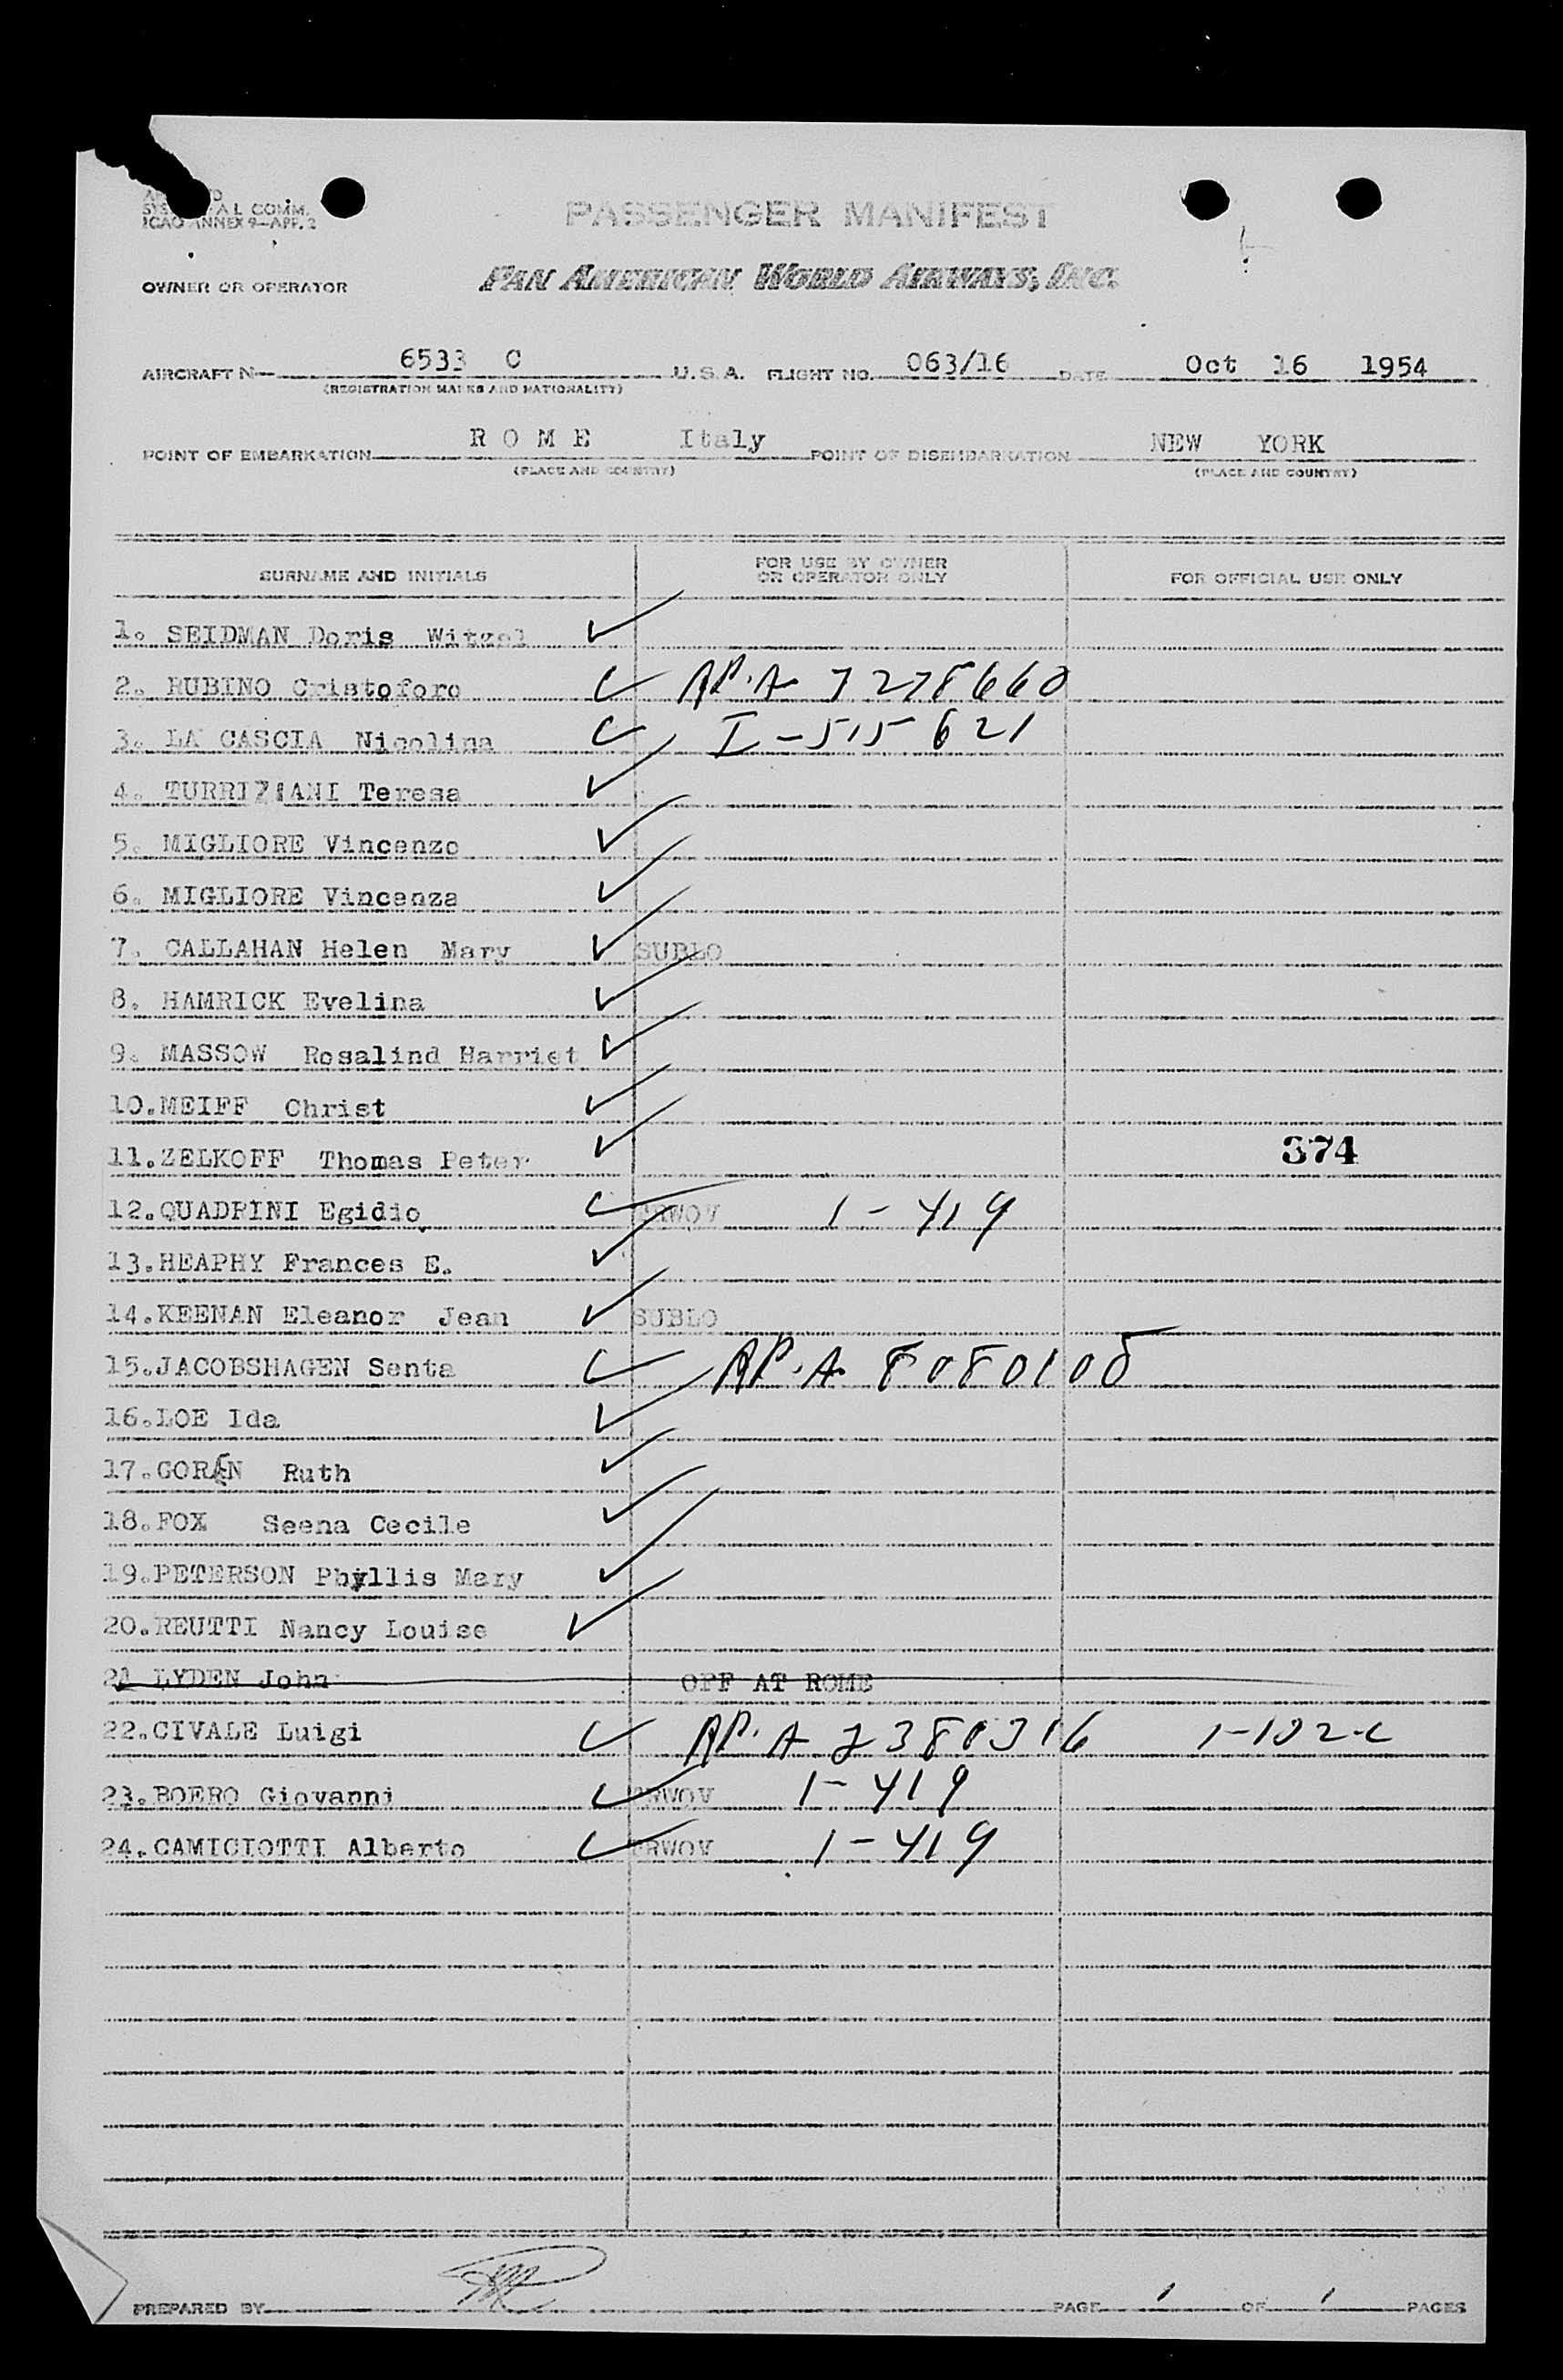 COMM.
ICAO ANNEX 9—APP. 2
PASSENGER MANIFEST
OWNER OR OPERATOR PAN AMERICAN WORLD AIRWAYS, INC.
AIRCRAFT N— 6533 C U.S.A. FLIGHT NO. 063/16 DATE Oct 16 1954
(REGISTRATION MARKS AND NATIONALITY)
POINT OF EMBARKATION ROME Italy POINT OF DISEMBARKATION NEW YORK
(PLACE AND COUNTRY) (PLACE AND COUNTRY)
SURNAME AND INITIALS FOR USE BY OWNER OR OPERATOR ONLY FOR OFFICIAL USE ONLY
1. SEIDMAN Doris Witzel ✓
2. RUBINO Cristoforo ✓ AR.A 7278660
3. LA CASCIA Nicolina ✓ I-515621
4. TURRIZIANI Teresa ✓
5. MIGLIORE Vincenzo ✓
6. MIGLIORE Vincenza ✓
7. CALLAHAN Helen Mary ✓ SUBLO
8. HAMRICK Evelina ✓
9. MASSOW Rosalind Harriet ✓
10. MEIFF Christ ✓
11. ZELKOFF Thomas Peter ✓ 374
12. QUADRINI Egidio ✓ RWOV 1-419
13. HEAPHY Frances E. ✓
14. KEENAN Eleanor Jean ✓ SUBLO
15. JACOBSHAGEN Senta ✓ AR.A 8080105
16. LOE Ida ✓
17. GOREN Ruth ✓
18. FOX Seena Cecile ✓
19. PETERSON Phyllis Mary ✓
20. REUTTI Nancy Louise ✓
21 LYDEN John OFF AT ROME
22. CIVALE Luigi ✓ AR.A 2380316 1-182-C
23. BOERO Giovanni ✓ RWOV 1-419
24. CAMICIOTTI Alberto ✓ RWOV 1-419
PREPARED BY PAGE 1 OF 1 PAGES